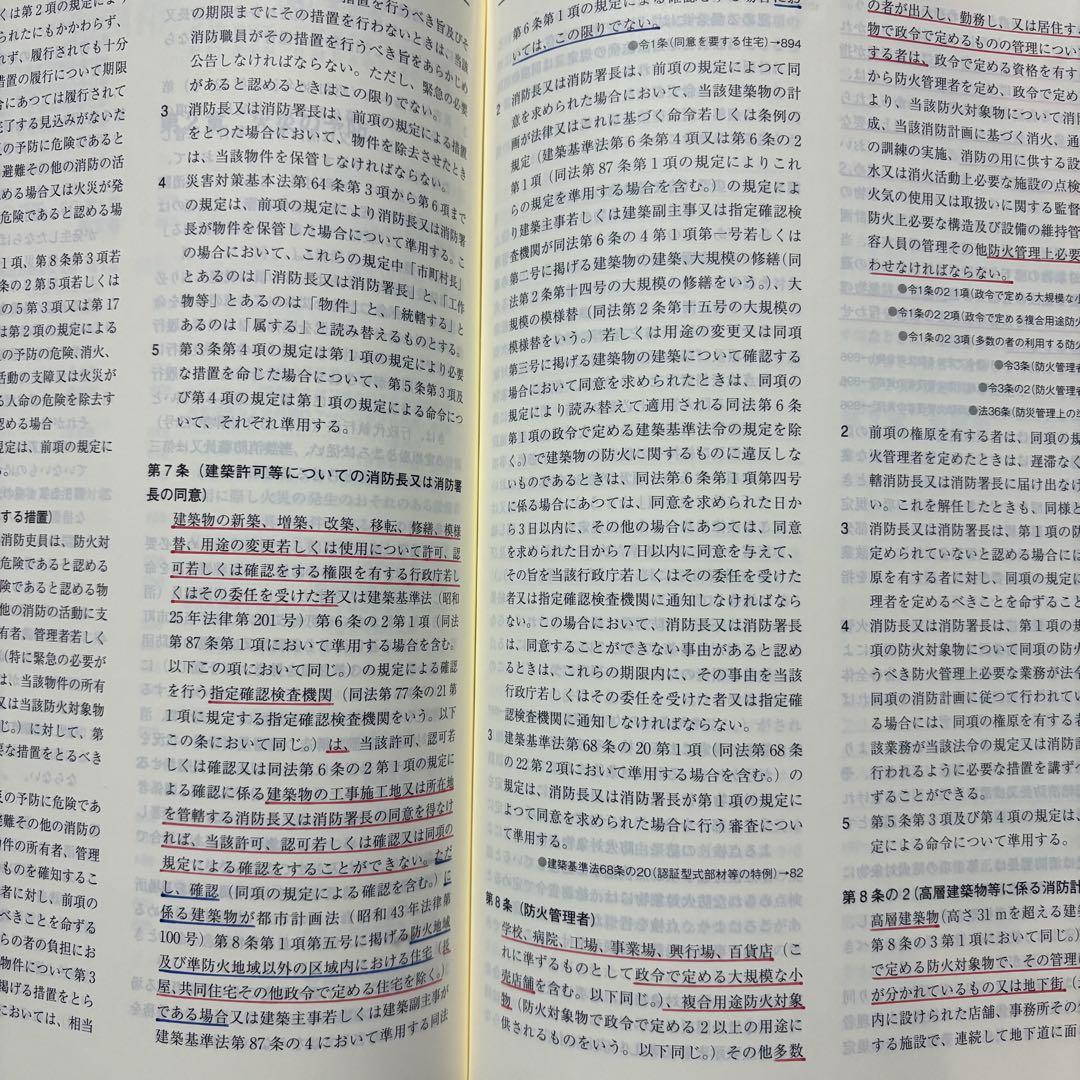 られたにもかかわらず、
、履行されても十分
措置の履行について期限
合にあつては履行されて
完了する見込みがないた
災の予防に危険であると
避難その他の消防の活
める場合又は火災が発
危険であると認める場
1項、第8条第3項若
条の2第5項若しくは
の5第3項又は第17
は第2項の規定による
の予防の危険、消火、
活動の支障又は火災が
る人命の危険を除去す
認める場合
規定は、前項の規定に
する措置)
消防吏員は、防火対
危険であると認める
険であると認める物
他の消防の活動に支
有者、管理者若しく
(特に緊急の必要が
は、当該物件の所有
又は当該防火対象物
じ。)に対して、第
要な措置をとるべき
災の予防に危険であ
避難その他の消防の
物件の所有者、管理
ものを確知するこ
者に対し、前項の
べきことを命ずる
らの者の負担にお
物件について第3
掲げる措置をとら
においては、相当
措置を行うべき旨及びそ
の期限までにその措置を行わないときは、当該
消防職員がその措置を行うべき旨をあらかじめ
公告しなければならない。ただし、緊急の必要
があると認めるときはこの限りでない。
3 消防長又は消防署長は、前項の規定による措置
をとつた場合において、物件を除去させたとき
は、当該物件を保管しなければならない。
4 災害対策基本法第64条第3項から第6項まで
の規定は、前項の規定により消防長又は消防署
長が物件を保管した場合について準用する。こ
の場合において、これらの規定中「市町村長」
とあるのは「消防長又は消防署長」と、「工作
物等」とあるのは「物件」と、「統轄する」と
あるのは「属する」と読み替えるものとする。
5 第3条第4項の規定は第1項の規定により必要
な措置を命じた場合について、第5条第3項及
び第4項の規定は第1項の規定による命令につ
いて、それぞれ準用する。
第7条(建築許可等についての消防長又は消防署
長の同意)
建築物の新築、増築、改築、移転、修繕、模様
替、用途の変更若しくは使用について許可、認
可若しくは確認をする権限を有する行政庁若し
くはその委任を受けた者又は建築基準法(昭和
25年法律第201号)第6条の2第1項(同法
第87条第1項において準用する場合を含む。
以下この項において同じ。)の規定による確認
を行う指定確認検査機関(同法第77条の21第
1項に規定する指定確認検査機関をいう。以下
この条において同じ。)は、当該許可、認可若
しくは確認又は同法第6条の2第1項の規定に
よる確認に係る建築物の工事施工地又は所在地
を管轄する消防長又は消防署長の同意を得なけ
れば、当該許可、認可若しくは確認又は同項の
規定による確認をすることができない。ただ
し、確認(同項の規定による確認を含む。)に
係る建築物が都市計画法(昭和43年法律第
100号)第8条第1項第五号に掲げる防火地域
及び準防火地域以外の区域内における住宅(長
屋、共同住宅その他政令で定める住宅を除く。)
である場合又は建築主事若しくは建築副主事が
建築基準法第87条の4において準用する同法
第6条第1項の規定による確認をする場合にお
いては、この限りでない。
●令1条(同意を要する住宅)→894
2 消防長又は消防署長は、前項の規定によつて同
意を求められた場合において、当該建築物の計
画が法律又はこれに基づく命令若しくは条例の
規定(建築基準法第6条第4項又は第6条の2
第1項(同法第87条第1項の規定によりこれ
らの規定を準用する場合を含む。)の規定によ
り建築主事若しくは建築副主事又は指定確認検
査機関が同法第6条の4第1項第一号若しくは
第二号に掲げる建築物の建築、大規模の修繕(同
法第2条第十四号の大規模の修繕をいう。)、大
規模の模様替(同法第2条第十五号の大規模の
模様替をいう。)若しくは用途の変更又は同項
第三号に掲げる建築物の建築について確認する
場合において同意を求められたときは、同項の
規定により読み替えて適用される同法第6条
第1項の政令で定める建築基準法令の規定を除
く。)で建築物の防火に関するものに違反しな
いものであるときは、同法第6条第1項第四号
に係る場合にあつては、同意を求められた日か
ら3日以内に、その他の場合にあつては、同意
を求められた日から7日以内に同意を与えて、
その旨を当該行政庁若しくはその委任を受けた
者又は指定確認検査機関に通知しなければなら
ない。この場合において、消防長又は消防署長
は、同意することができない事由があると認め
るときは、これらの期限内に、その事由を当該
行政庁若しくはその委任を受けた者又は指定確
認検査機関に通知しなければならない。
3 建築基準法第68条の20第1項(同法第68条
の22第2項において準用する場合を含む。)の
規定は、消防長又は消防署長が第1項の規定に
よつて同意を求められた場合に行う審査につい
て準用する。
●建築基準法68条の20(認証型式部材等の特例)→82
第8条(防火管理者)
学校、病院、工場、事業場、興行場、百貨店(こ
れに準ずるものとして政令で定める大規模な小
売店舗を含む。以下同じ。)、複合用途防火対象
物(防火対象物で政令で定める2以上の用途に
供されるものをいう。以下同じ。)その他多数
の者が出入し、勤務し、又は居住する
物で政令で定めるものの管理につい
する者は、政令で定める資格を有す
から防火管理者を定め、政令で定め
より、当該防火対象物について消
成、当該消防計画に基づく消火、通
の訓練の実施、消防の用に供する設
水又は消火活動上必要な施設の点検
火気の使用又は取扱いに関する監督
防火上必要な構造及び設備の維持管
容人員の管理その他防火管理上必要
わせなければならない。
●令1条の2 1項(政令で定める大規模な小
●令1条の2 2項(政令で定める複合用途防火
●令1条の2 3項(多数の者の利用する防火
●令3条(防火管理者
●令3条の2(防火管理者
●法36条(防災管理上の
2 前項の権原を有する者は、同項の規
火管理者を定めたときは、遅滞なく
轄消防長又は消防署長に届け出なけ
い。これを解任したときも、同様と
3 消防長又は消防署長は、第1項の
定められていないと認める場合には
原を有する者に対し、同項の規定に
理者を定めるべきことを命ずること
4 消防長又は消防署長は、第1項の規
項の防火対象物について同項の防火
うべき防火管理上必要な業務が法令
同項の消防計画に従つて行われてい
る場合には、同項の権原を有する者
該業務が当該法令の規定又は消防計
行われるように必要な措置を講ずべ
ずることができる。
5 第5条第3項及び第4項の規定は、
定による命令について準用する。
第8条の2(高層建築物等に係る消防計
高層建築物(高さ31mを超える建
第8条の3第1項において同じ。)
で定める防火対象物で、その管理に
が分かれているもの又は地下街(
内に設けられた店舗、事務所その
する施設で、連続して地下道に面